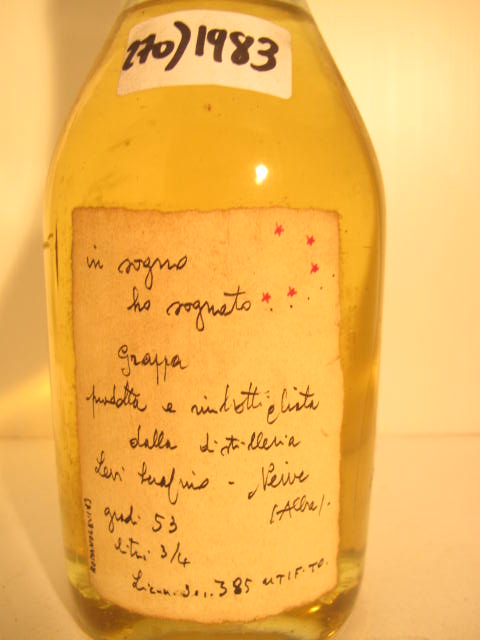 270) 1983
in sogno
ho sognato...
Grappa
prodotta e imbottigliata
dalla distilleria
Levi Serafino - Neive
(Alba).
gradi 53
litri 3/4
385 UTIF. TO.